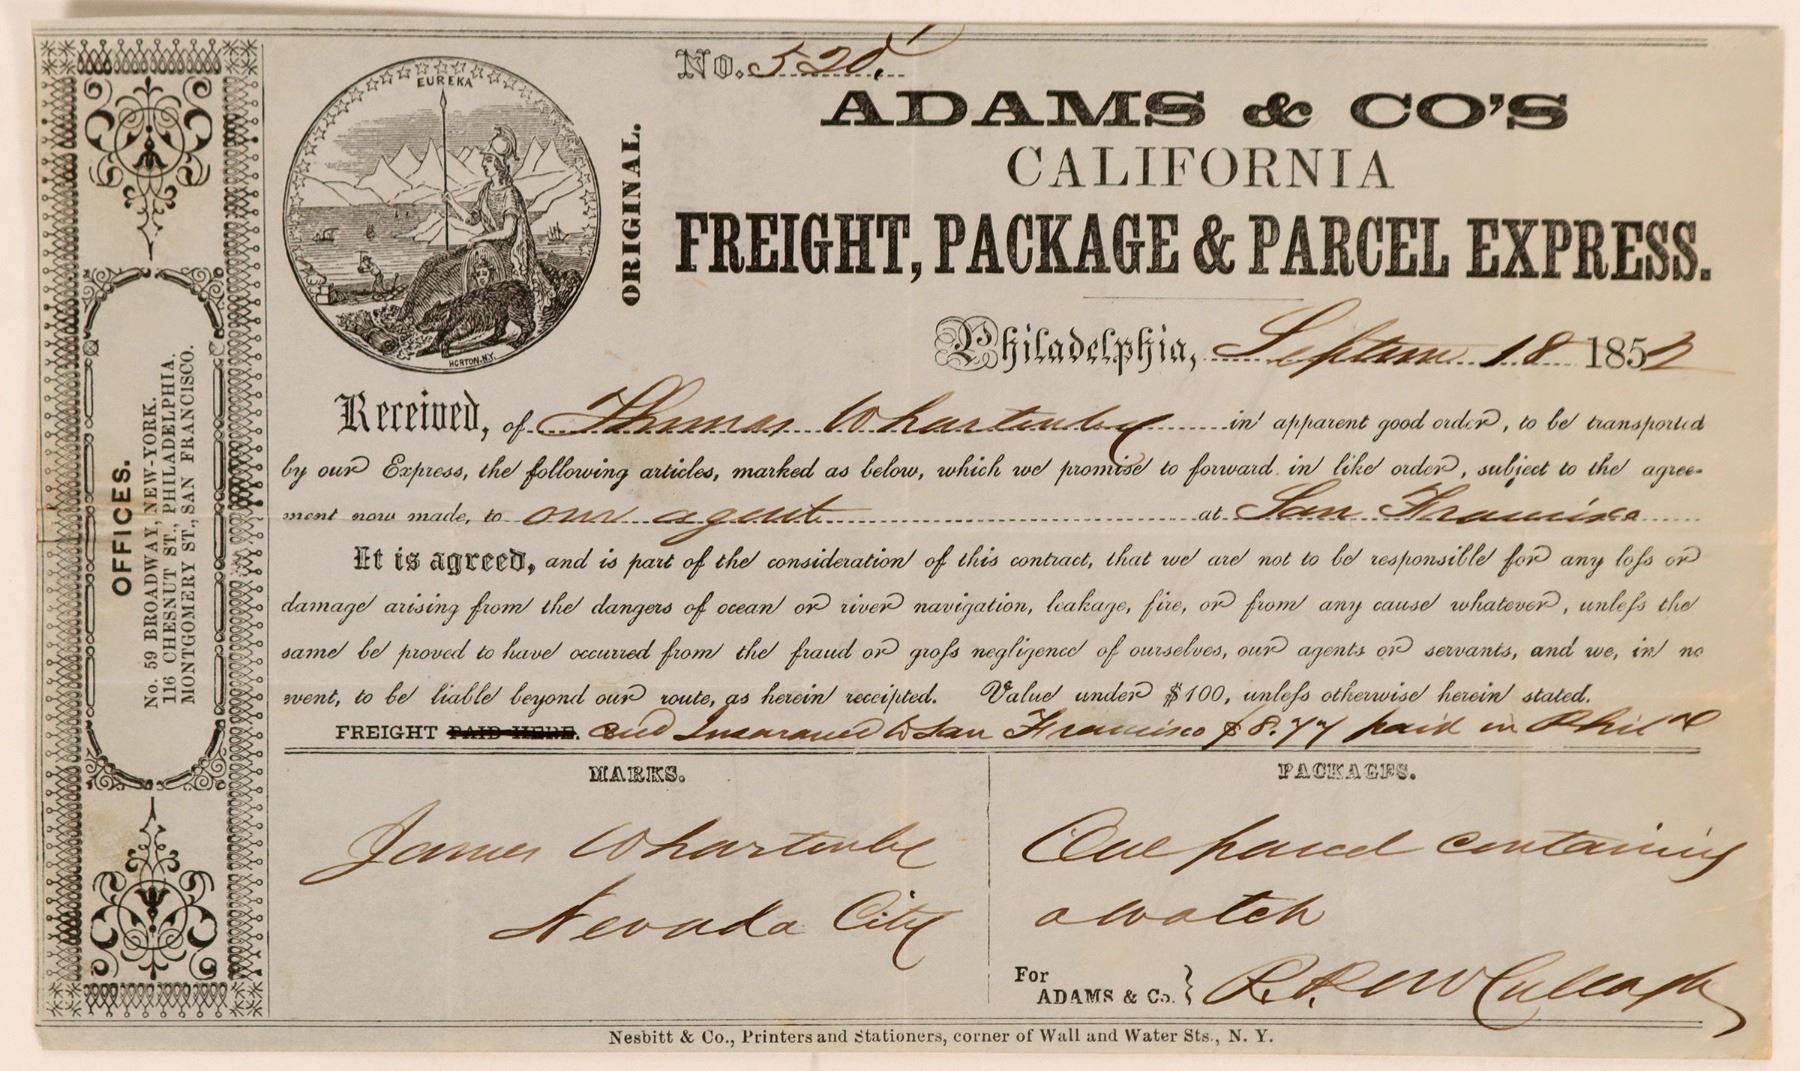 No. 520.
EUREKA
HORTON. N.Y.
ORIGINAL.
ADAMS & CO'S
CALIFORNIA
FREIGHT, PACKAGE & PARCEL EXPRESS.
Philadelphia, Septem 18 1852
Received, of Thomas Whartenby in apparent good order, to be transported
by our Express, the following articles, marked as below, which we promise to forward in like order, subject to the agree-
ment now made, to our agent at San Francisco
It is agreed, and is part of the consideration of this contract, that we are not to be responsible for any loss or
damage arising from the dangers of ocean or river navigation, leakage, fire, or from any cause whatever, unless the
same be proved to have occurred from the fraud or gross negligence of ourselves, our agents or servants, and we, in no
event, to be liable beyond our route, as herein receipted. Value under $100, unless otherwise herein stated.
FREIGHT PAID HERE. and Insurance to San Francisco $8.77 paid in Phila
MARKS.
James Whartenby
Nevada City
PACKAGES.
One parcel containing
a watch
For
ADAMS & Co. McCullough
OFFICES.
No. 59 BROADWAY, NEW-YORK.
116 CHESNUT ST., PHILADELPHIA.
MONTGOMERY ST., SAN FRANCISCO.
Nesbitt & Co., Printers and Stationers, corner of Wall and Water Sts., N. Y.